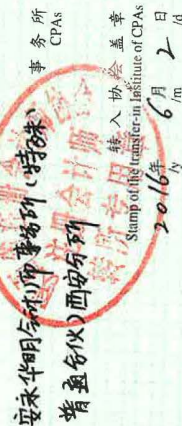 安永华明会计师事务所(特殊
普通合伙)西安分所
事务所
CPAs
转入协会盖章
Stamp of the transfer-in Institute of CPAs
2016年 6月 2日
/y /m /d